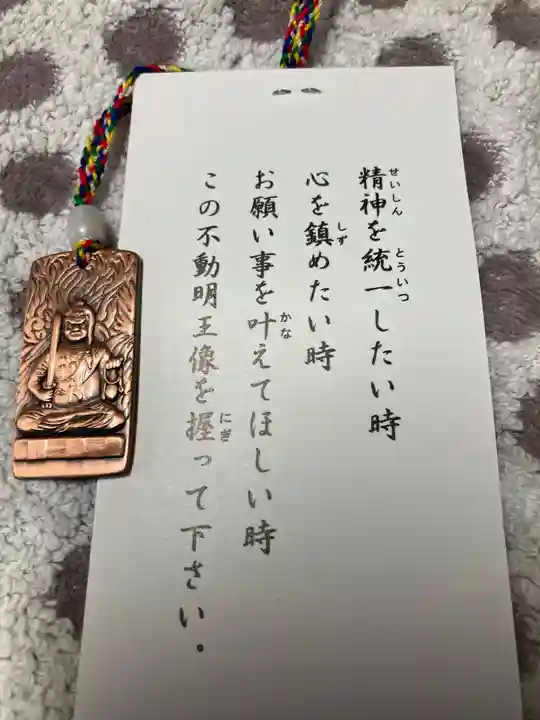 精神を統一したい時
心を鎮めたい時
お願い事を叶えてほしい時
この不動明王像を握って下さい。
せいしん
とういつ
しず
かな
にぎ